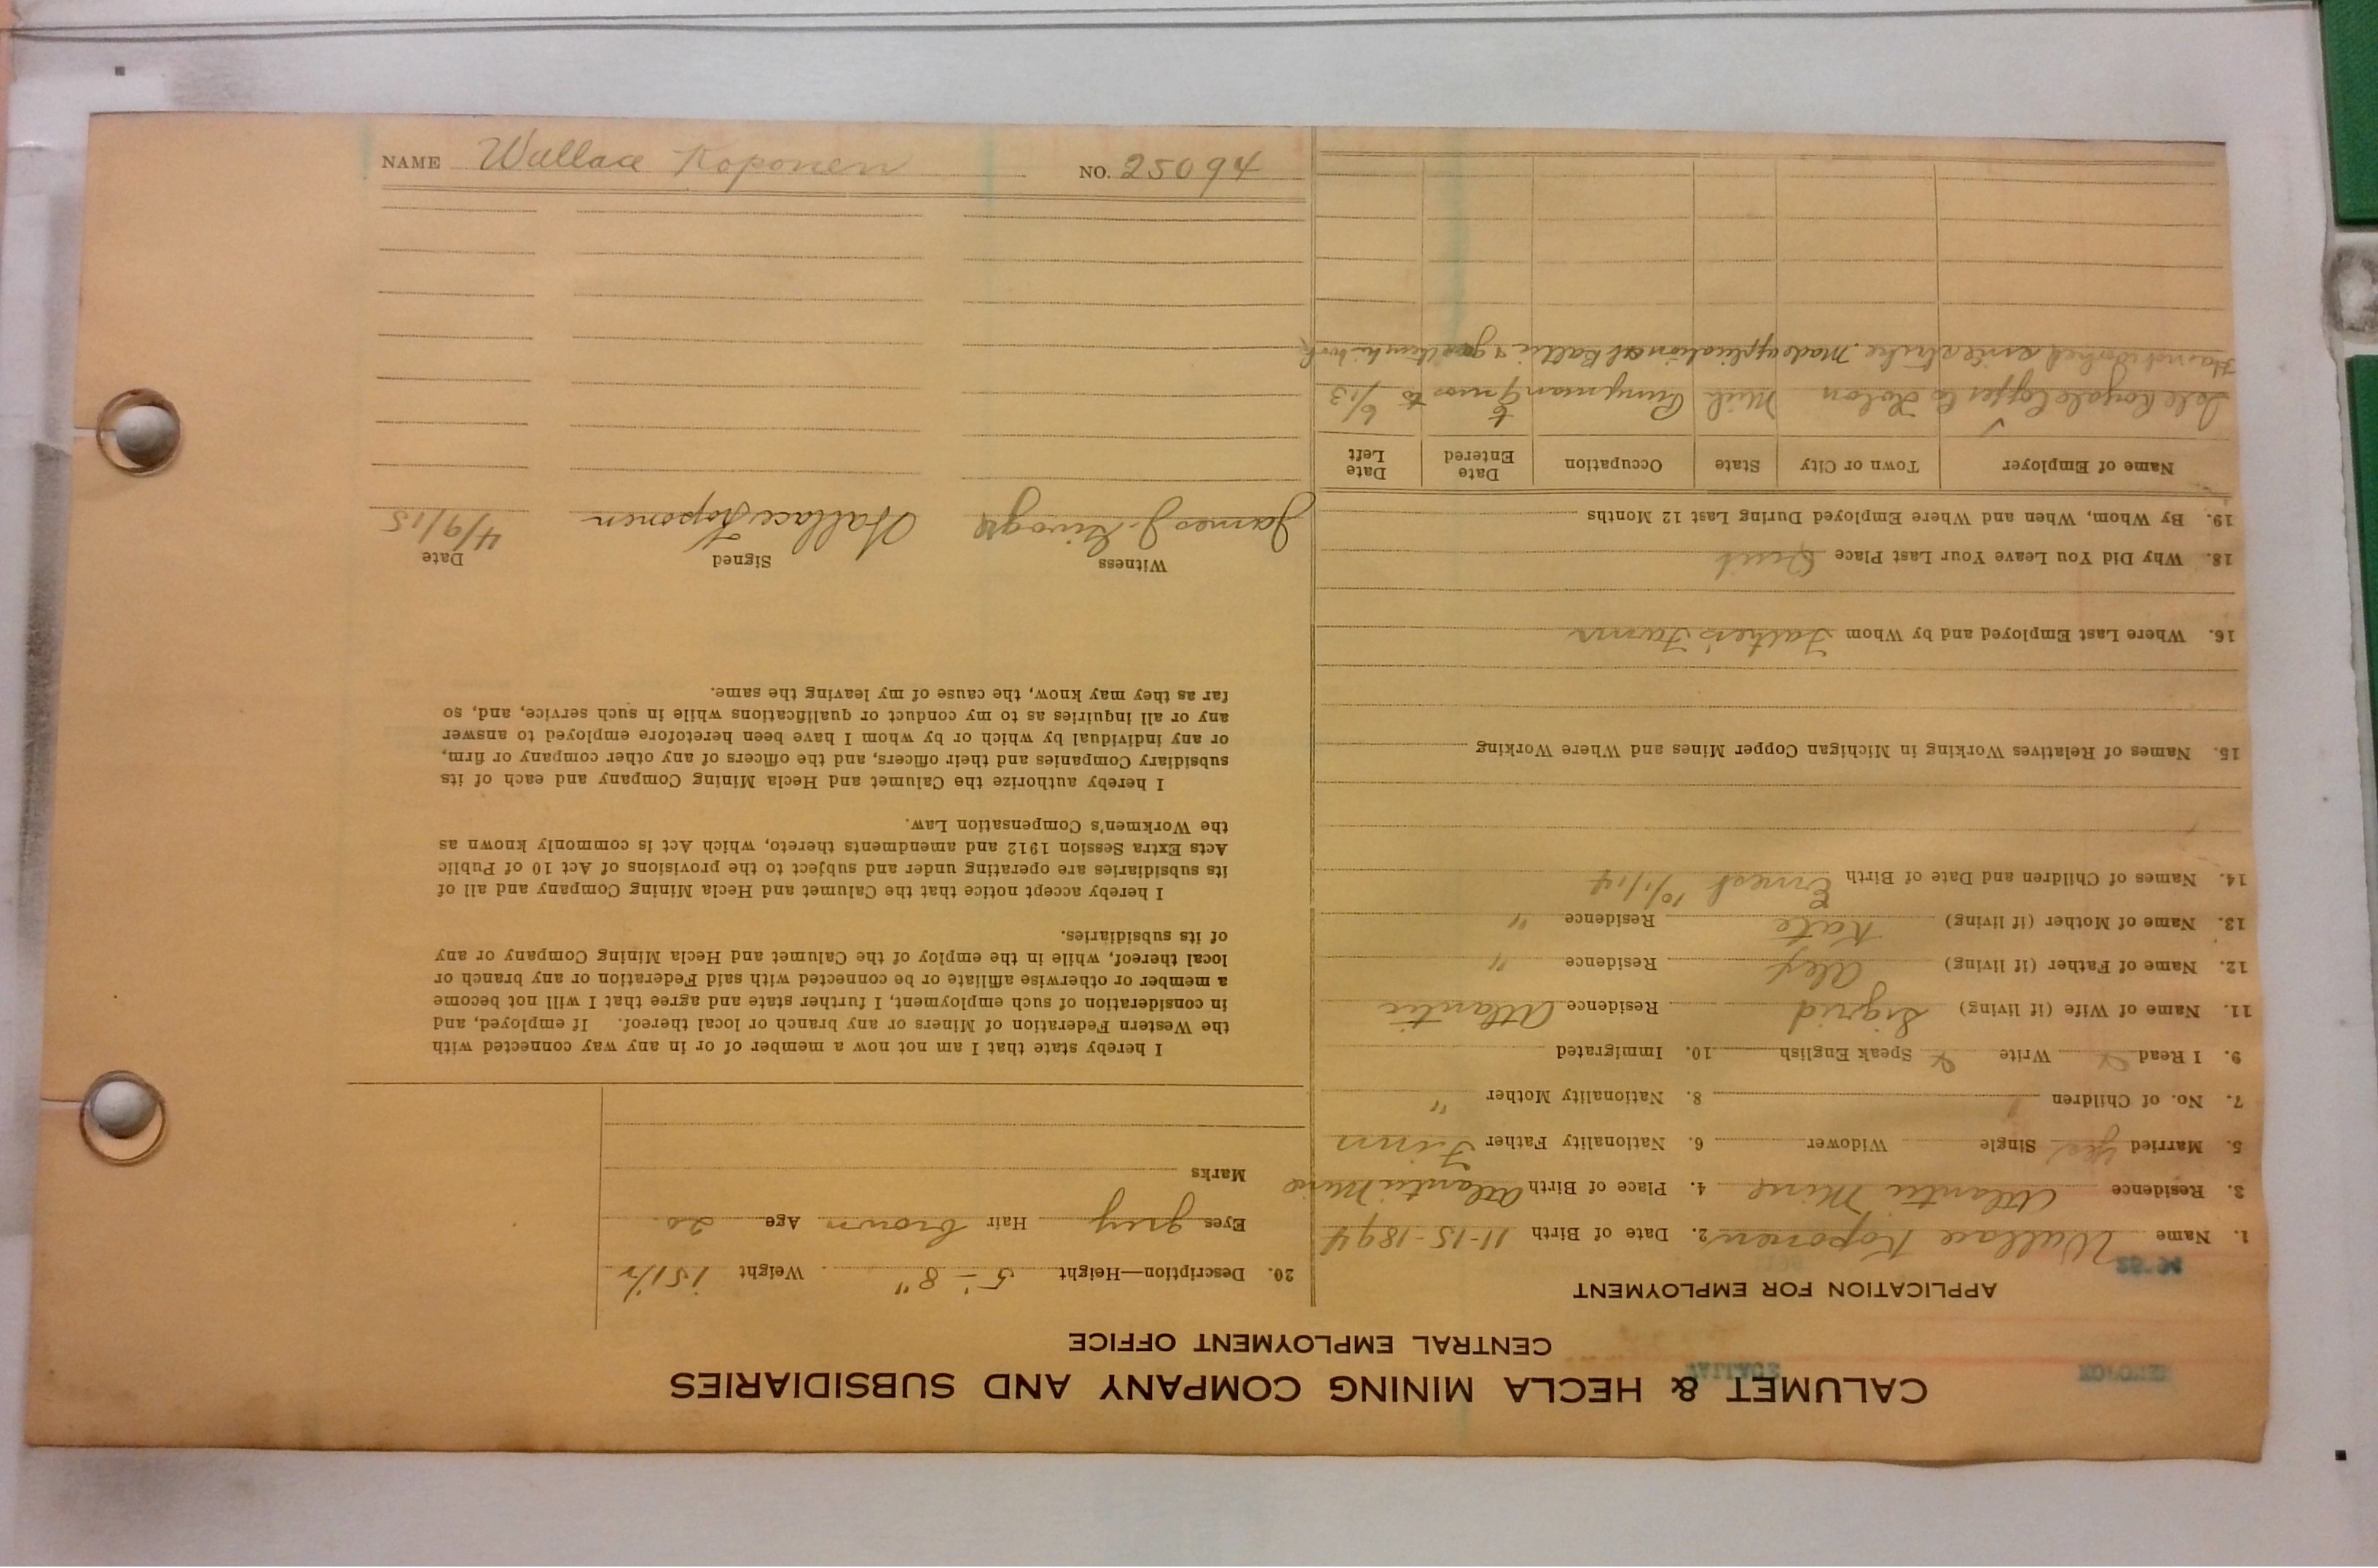 CALUMET & HECLA MINING COMPANY AND SUBSIDIARIES
CENTRAL EMPLOYMENT OFFICE
APPLICATION FOR EMPLOYMENT
1. Name Wallace Koponen 2. Date of Birth 11-15-1894
3. Residence Atlantic Mine 4. Place of Birth Atlantic Mine
5. Married yes Single Widower 6. Nationality Father Finn
7. No. of Children 1 8. Nationality Mother "
9. I Read Write Speak English 10. Immigrated
11. Name of Wife (if living) Sigrid Residence Atlantic
12. Name of Father (if living) Alex Residence "
13. Name of Mother (if living) Kate Residence "
14. Names of Children and Date of Birth Ernest 10/1/14
15. Names of Relatives Working in Michigan Copper Mines and Where Working
16. Where Last Employed and by Whom Father's Farm
18. Why Did You Leave Your Last Place Quit
19. By Whom, When and Where Employed During Last 12 Months
Name of Employer Town or City State Occupation Date Entered Date Left
Isle Royale Copper Co Holon Mich 6/13
Has not worked since strike. Made application at Baltic &
20. Description—Height 5'-8" Weight 151½
Eyes grey Hair brown Age 20
Marks
I hereby state that I am not now a member of or in any way connected with
the Western Federation of Miners or any branch or local thereof. If employed, and
in consideration of such employment, I further state and agree that I will not become
a member or otherwise affiliate or be connected with said Federation or any branch or
local thereof, while in the employ of the Calumet and Hecla Mining Company or any
of its subsidiaries.
I hereby accept notice that the Calumet and Hecla Mining Company and all of
its subsidiaries are operating under and subject to the provisions of Act 10 of Public
Acts Extra Session 1912 and amendments thereto, which Act is commonly known as
the Workmen's Compensation Law.
I hereby authorize the Calumet and Hecla Mining Company and each of its
subsidiary Companies and their officers, and the officers of any other company or firm,
or any individual by which or by whom I have been heretofore employed to answer
any or all inquiries as to my conduct or qualifications while in such service, and, so
far as they may know, the cause of my leaving the same.
Witness Signed Date
James J. Wallace Koponen 4/9/15
NAME Wallace Koponen NO. 25094